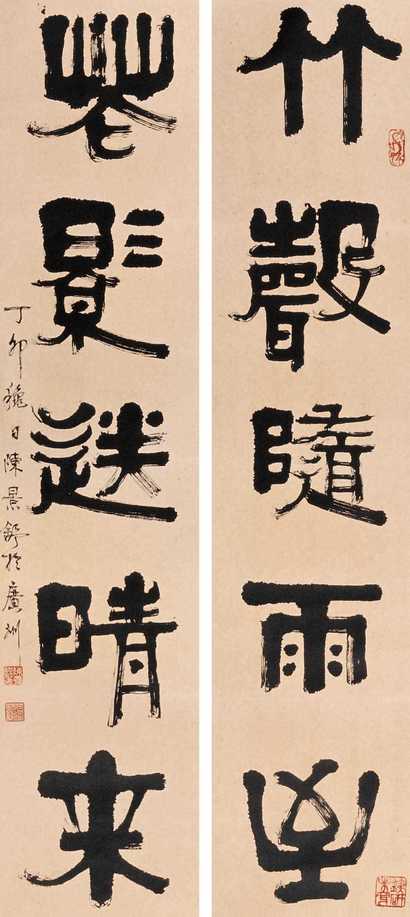 竹聲隨雨至
花影送晴來
丁卯穐日陳景舒於廣州